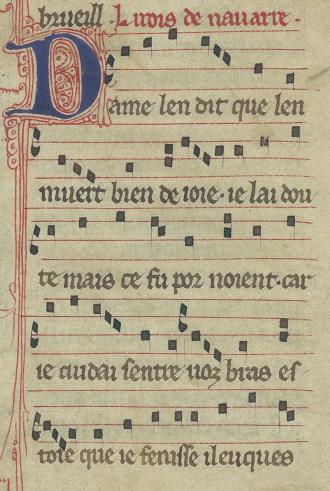 brueill · Li rois de nauarre ·
Dame len dit que len
muert bien de ioie · ie lai dou
te mais ce fu por noient · car
ie cuidai sentre uoz bras es
toie que ie fenisse ileuques